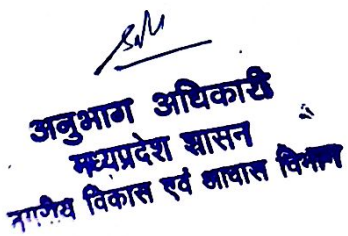 अनुभाग अधिकारी
मध्यप्रदेश शासन
नगरीय विकास एवं आवास विभाग